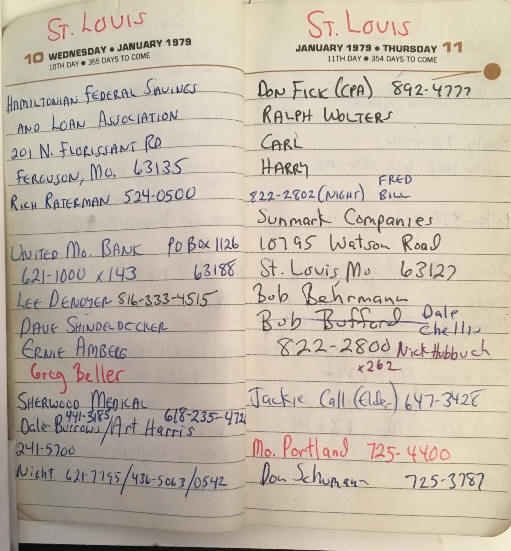 St. Louis
10 WEDNESDAY • JANUARY 1979
10TH DAY • 355 DAYS TO COME
Hamiltonian Federal Savings
and Loan Association
201 N. Florissant Rd
Ferguson, Mo. 63135
Rich Raterman 524-0500
United Mo. Bank PO Box 1126
621-1000 x143 63188
Lee Denoyer 816-333-4515
Dave Shindeldecker
Ernie Amberg
Greg Beller
Sherwood Medical
441-3185 618-235-472
Dale Burrows/Art Harris
241-5700
Night 621-7795/436-5063/0542
St. Louis
JANUARY 1979 • THURSDAY 11
11TH DAY • 354 DAYS TO COME
Don Fick (CPA) 892-4777
Ralph Wolters
Carl
Harry
Fred
822-2802 (Night) Bill
Sunmark Companies
10795 Watson Road
St. Louis, Mo 63127
Bob Behrmann
Bob Bufford Dale
Chellis
822-2800 Nick Hubbuch
x262
Jackie Call (Elder) 647-3428
Mo. Portland 725-4400
Don Schumann 725-3787